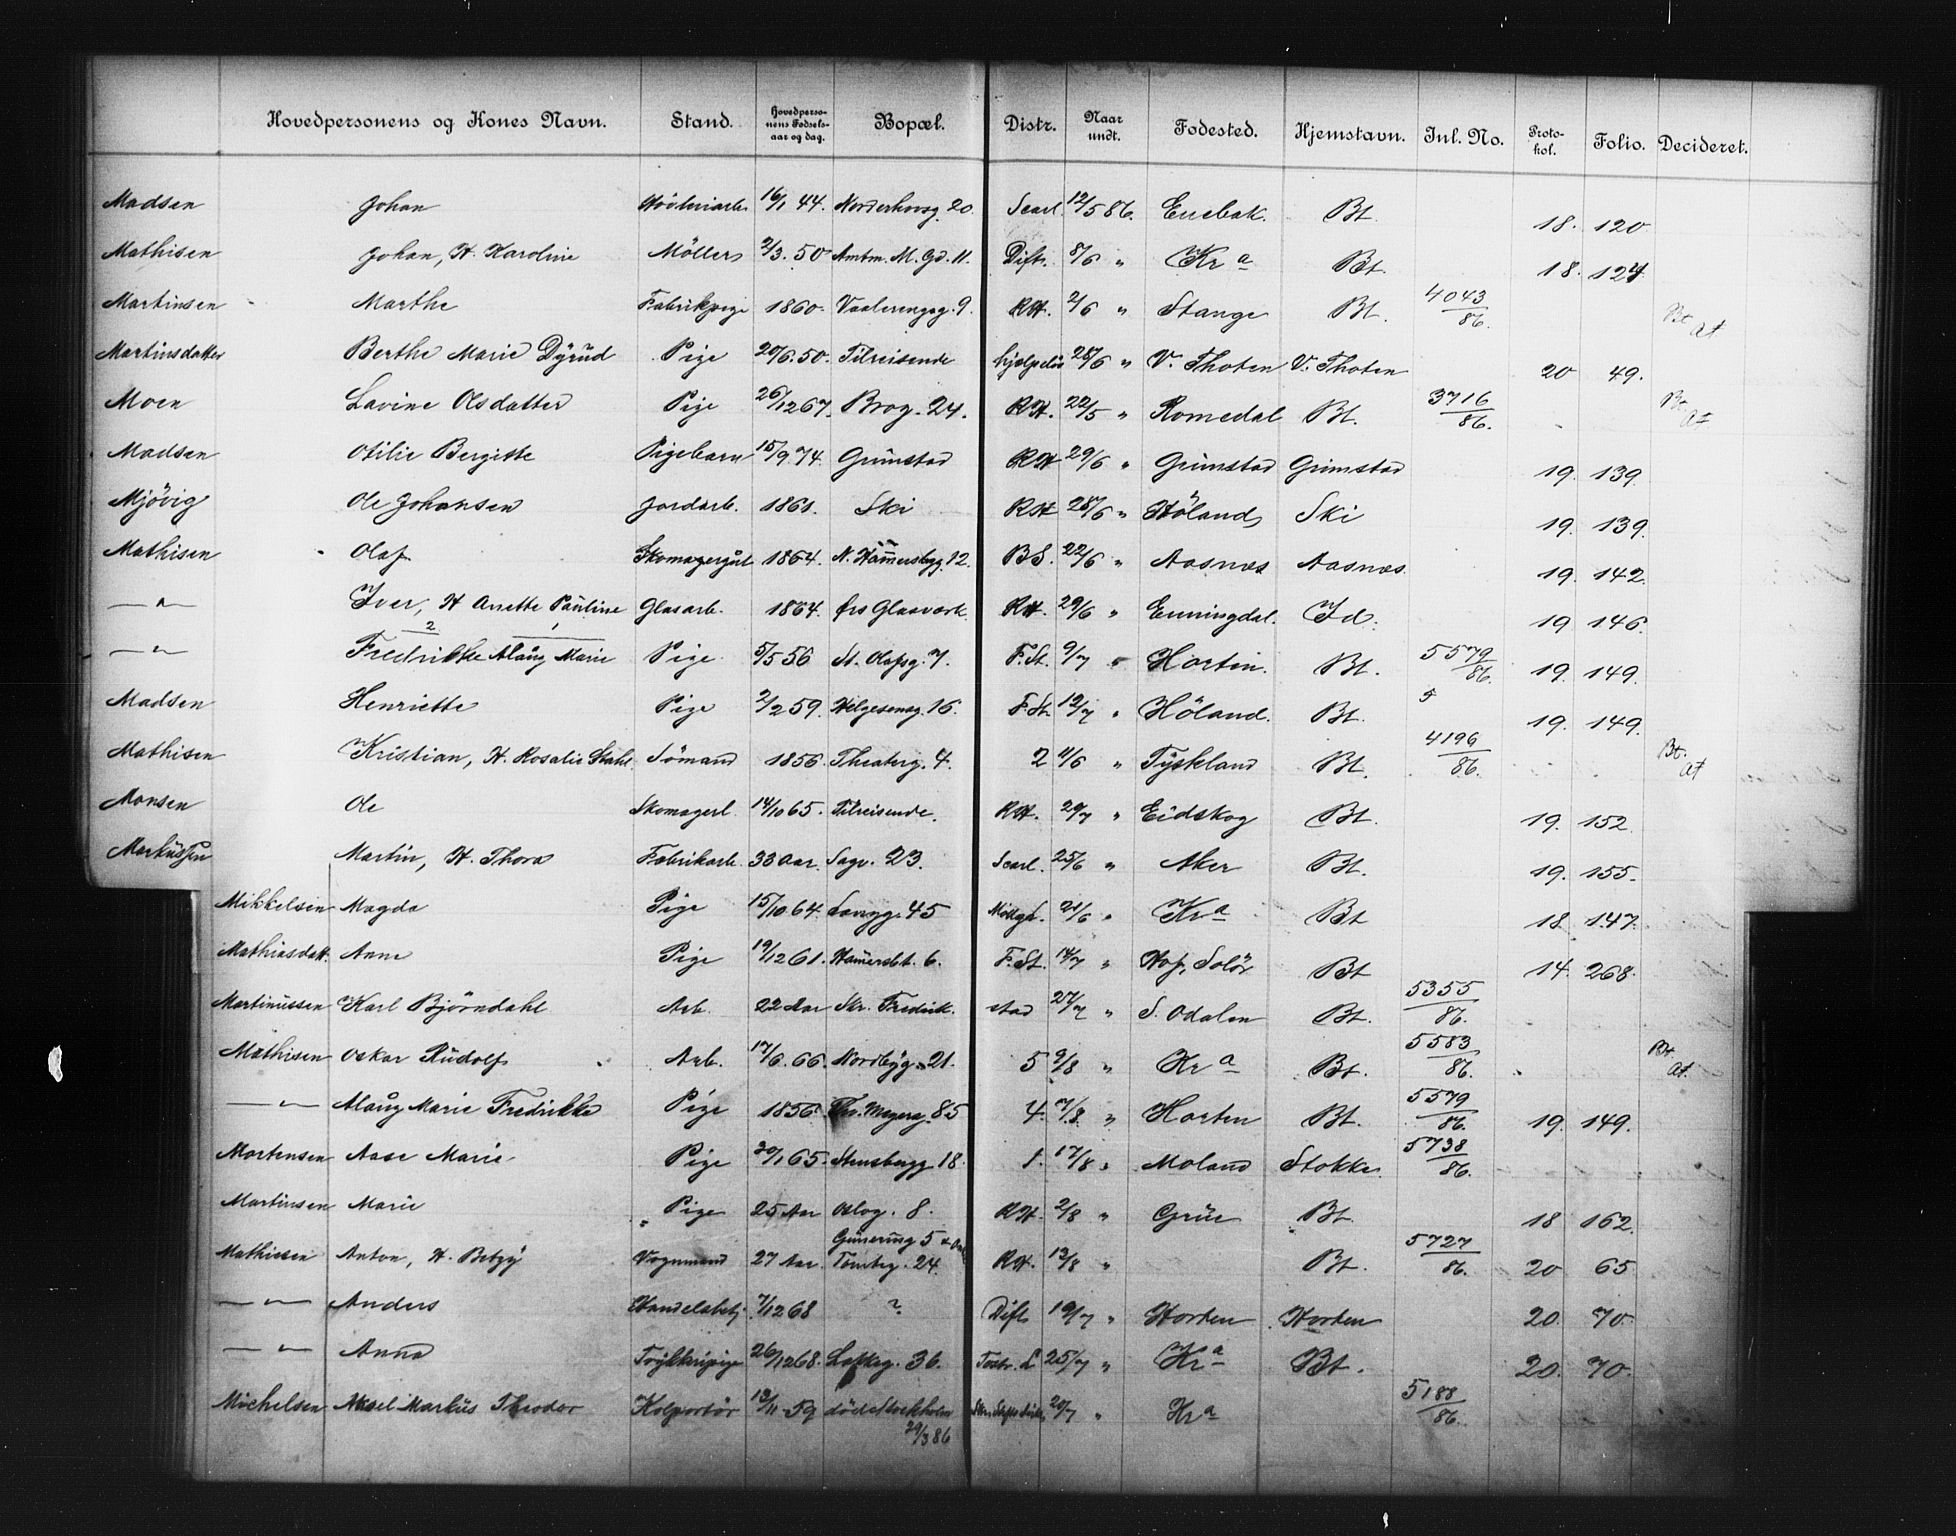 Hovedpersonens og Kones Navn. Stand. Hovedpersonens Fødselsaar og dag. Bopæl. Distr. Naar undt. Fødested. Hjemstavn. Inl. No. Protokol. Folio. Decideret.
Madsen Johan 16/1 44. Norderhovsg. 20. Scarl. 12/5 86. Enebak. Bt. 18. 120
Mathisen Johan, H. Karoline Möllers 2/3. 50 Amtm. M. Gd. 11. Dift. 8/6 " Kra Bt. 18. 124
Martinsen Marthe Fabrikpige 1860. Vaalerengsg. 9. RH. 2/6 " Stange Bt. 4043/86. Bt. At
Martinsdatter Berthe Marie Dyrud Pige 20/6. 50. Tilreisende hjælpeløs 28/6 " V. Thoten V. Thoten 20 49.
Moen Lavine Olsdatter Pige 26/12 67. Brog. 24. RH. 22/5 " Romedal Bt. 3716/86. Bt. At
Madsen Otilie Bergitte Pigebarn 15/9. 74. Grimstad RH 29/6 " Grimstad Grimstad 19. 139.
Mjövig Ole Johansen Jordarb. 1861. Ski RH 28/6 " Höland Ski 19. 139.
Mathisen Olaf 1864. N. Hammersbg. 12. BS. 22/6 " Aasnæs Aasnæs. 19. 142.
— " — Iver, H Anette Pauline Glasarb. 1864. Ørs Glasværk. RH. 29/6 " Enningdal. Id. 19. 146.
— " — Fredrikke Alaug Marie Pige 5/5 56 St. Olafsg. 7. F. St. 9/7 " Horten. Bt. 5579/86. 19. 149.
2 1
Madsen Henriette Pige 2/2 59. Helgesensg. 16. F. St. 12/7 " Höland. Bt. 5 19. 149.
Mathisen Kristian, H. Rosalie Stahl Sömand 1856. Theaterg. 4. 2 11/6 " Tyskland Bt. 4196/86. Bt. At
Monsen Ole Skomagerl. 14/10 65. Tilreisende. RH. 20/7 " Eidskog Bt. 19. 152.
Markussen Martin, H. Thora Fabrikarb. 33 Aar. Sagv. 23. Scarl. 25/6 " Aker Bt. 19. 155.
Mikkelsen Magda Pige 15/10 64. Langg. 45 21/6 " Kra Bt 18 147.
Mathiasdatt. Anne Pige 19/12 61. Hamersbt. 6. F. St. 14/7 " Hof, Solör Bt 14. 268.
Martinussen Karl Björndahl Arb. 22 Aar Skr. Fredrik. stad 27/7 " S. Odalen Bt. 5355/86.
Mathisen Oskar Rudolf Arb. 17/6. 66. Nordbyg. 21. 5 9/8 " Kra Bt. 5583/86. Bt. At.
— " — Alaug Marie Fredrikke Pige 1856. Th. Meyers. 85 4. 7/8. " Horten Bt. 5579/86. 19. 149.
Mortensen Aase Marie Pige 30/1 65. Stensbergg. 18. 1. 17/8 " Moland Stokke. 5738/86.
Martinsen Marie Pige 25 Aar Oslog. 8. RH. 2/8 " Grue Bt. 18 162.
Mathiesen Anton, H. Betzy Vognmand 27 Aar. Tomteg. 24. RH. 12/8 " Bt. 5727/86. 20 65
— " — Anders Handelsbetj. 7/12 68 ? Dift. 19/7 " Horten Horten 20. 70.
— " — Anna 26/12 68. Lakkeg. 36. 25/7 " Kra Bt. 20. 70.
Michelsen Aksel Markus Theodor Kolportör 13/11 59 död i Stockholm 20/7 " Kra 5188/86.
29/3 86